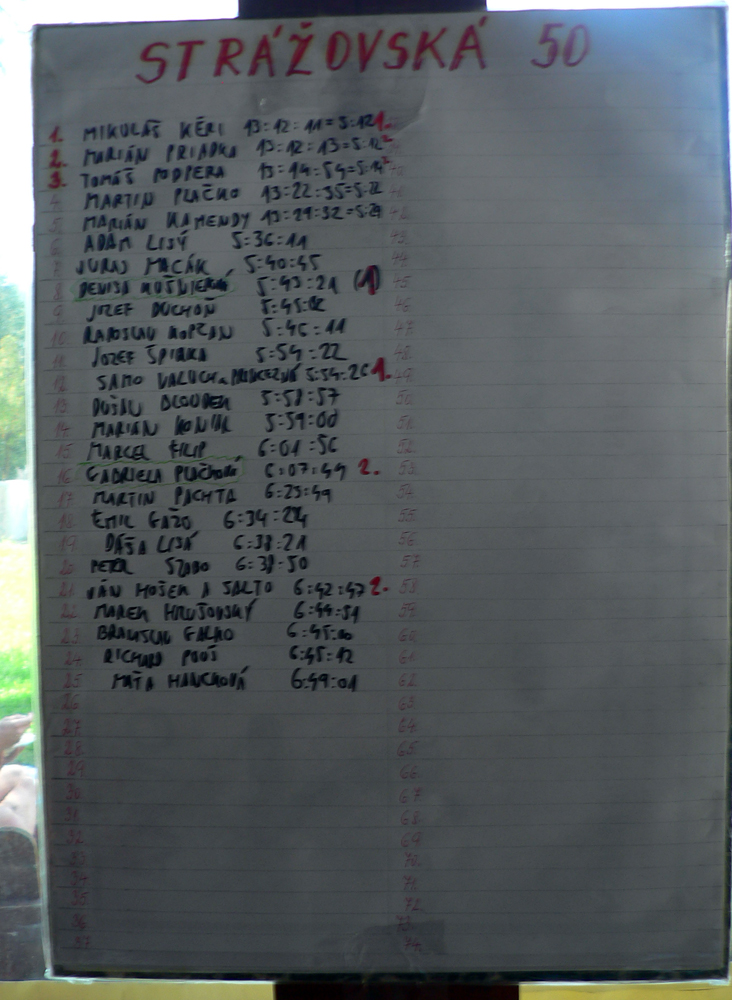 STRÁŽOVSKÁ 50
1. MIKULÁŠ KÉRI 13:12:11=5:12 1.
2. MARIÁN PRIADKA 13:12:13=5:12 2.
3. TOMÁŠ PODPERA 13:14:54=5:14 3.
4. MARTIN PLAČKO 13:22:35=5:22
5. MARIÁN KAMENDY 13:29:32=5:29
6. ADAM LISÝ 5:36:11
7. JURAJ MACÁK 5:40:45
8. DENISA 5:43:21 (1)
9. JOZEF DUCHOŇ 5:45:02
10. RADOSLAV KOPČAN 5:46:11
11. JOZEF ŠPIRKA 5:54:22
12. SAMO VALUCH a PRINCEZNÁ 5:54:26 1.
13. DUŠAN 5:58:57
14. MARIÁN 5:59:00
15. MARCEL FILIP 6:01:56
16. GABRIELA PLAČKOVÁ 6:07:49 2.
17. MARTIN PACHTA 6:25:49
18. EMIL GAŽO 6:34:24
19. DÁŠA LISÁ 6:38:21
20. PETER SZABO 6:38:50
21. JÁN MOŠEK A SALTO 6:42:47 2.
22. MAREK HRUŠOVSKÝ 6:44:51
23. BRANISLAV 6:45:10
24. RICHARD POÓŠ 6:45:12
25. MAŤA HANCKOVÁ 6:49:01
26.
27.
28.
29.
30.
31.
32.
33.
34.
35.
36.
37.
42.
43.
44.
45.
46.
47.
48.
49.
50.
51.
52.
53.
54.
55.
56.
57.
58.
59.
60.
61.
62.
63.
64.
65.
66.
67.
68.
69.
70.
71.
72.
73.
74.